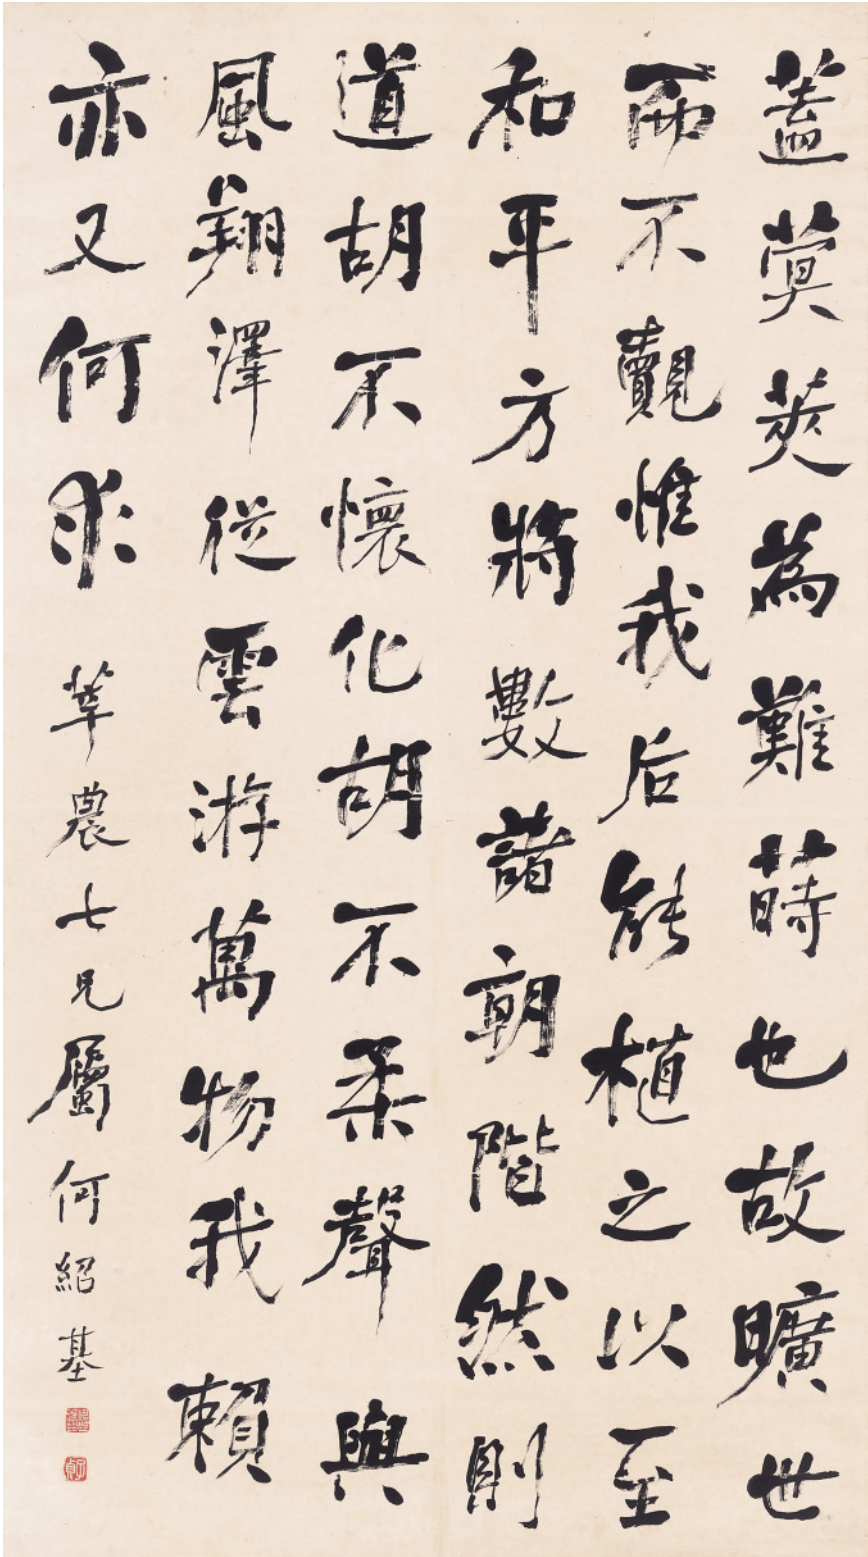 蓋蓂莢為難蒔也故曠世
而不覿惟我后能植之以至
和平方將數諸朝階然則
道胡不懷化胡不柔聲與
風翔澤從雲游萬物我賴
亦又何求
萃農七兄屬何紹基